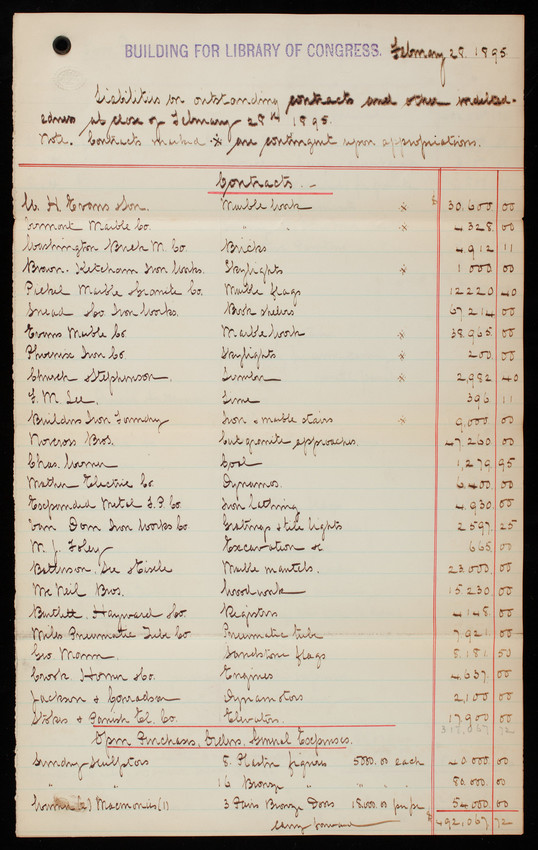 BUILDING FOR LIBRARY OF CONGRESS. February 28. 1895
Liabilities on outstanding contracts and other indebted-
edness at close of February 28th 1895.
Note. Contracts marked ※ are contingent upon appropriations.
Contracts.-
W. H. Evans & Son. Marble work ※ $ 30,600 00
Vermont Marble Co. " " ※ 4,328 00
Washington Brick M. Co. Bricks 4,912 11
Brown. Ketcham Iron Works. Skylights ※ 1 000 00
Pickel Marble & Granite Co. Marble flags 12220 40
Snead & Co. Iron Works. Book shelves 67,214 00
Evans Marble Co Marble work ※ 38,965 00
Phoenix Iron Co Skylights ※ 200 00
Church & Stephenson. Lumber ※ 2,982 40
F. M. Lee. Lime 396 11
Builders Iron Foundry Iron & marble stairs ※ 9,000 00
Norcross Bros. Cut granite approaches. 47,260 00
Chas. Coal 1,279 95
Mather Electric Co. Dynamos. 6,400 00
Expanded Metal F. P. Co. Iron lathing 4,930 00
Van Dorn Iron Works Co Gratings & tile lights 2597 25
M. J. Foley Excavation &c 665 00
Batterson, See & Eisele Marble mantels. 23,000 00
McNeil Bros. Woodwork 15,230 00
Bartlett. Hayward & Co. Registers 4,145 00
Miles Pneumatic Tube Co Pneumatic tube 7,921 00
Geo. Mann. Sandstone flags 8,181 50
Crook. Horner & Co. Engines 4,637 00
Jackson & Dynamotors 2,100 00
Stokes & Parrish El. Co. Elevators. 17,900 00
318,067 72
Open Purchases, Orders, General Expenses.
Sundry Sculptors 8. Plaster figures 5000.00 each 40 000 00
" " 16 Bronze " " " 80,000 00
(2) Macmonies (1) 3 Pairs Bronze Doors 18,000.00 per pr. 54 000 00
carry forward $ 492,067 72